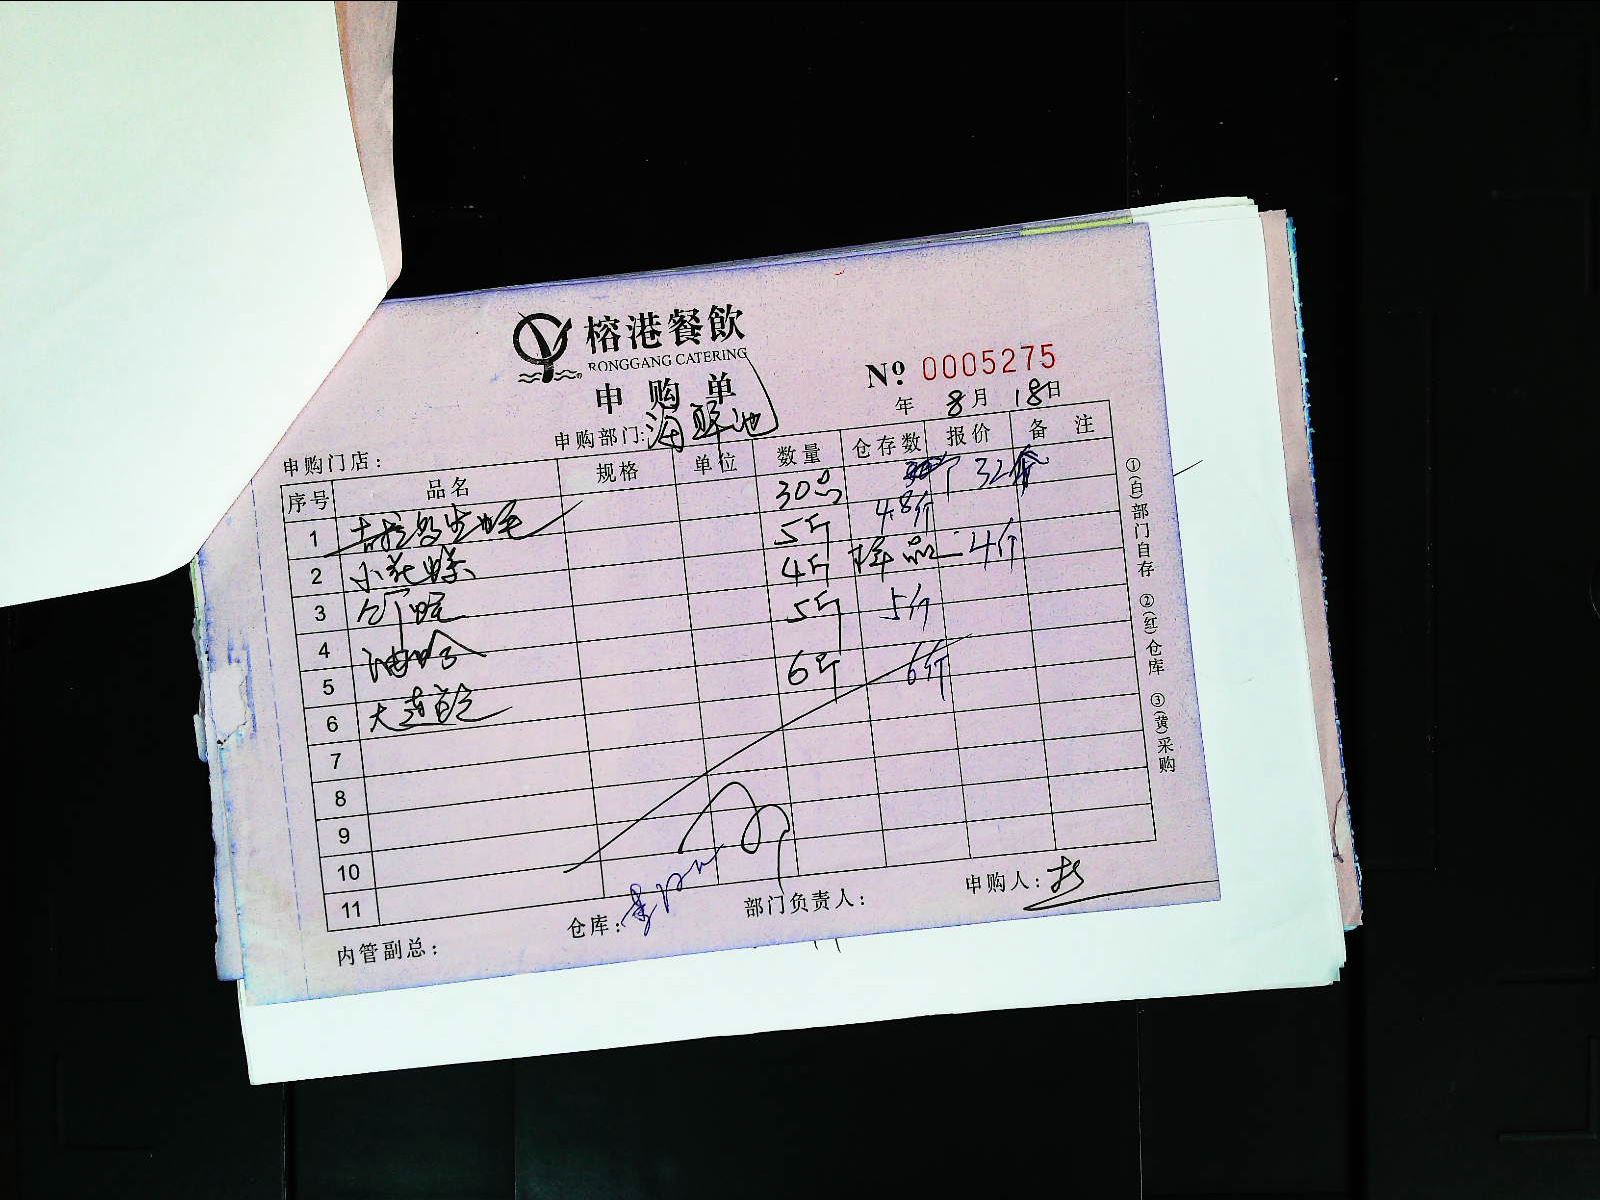 榕港餐飲
RONGGANG CATERING
申购单
№ 0005275
年 8月 18日
申购部门:海鲜池
申购门店:
序号 品名 规格 单位 数量 仓存数 报价 备注
1 吉拉多生蚝 30 32个
2 小花螺 5斤 4.8斤
3 4斤 样品 4斤
4 油蛤 5斤 5斤
5
6 大连鲍 6斤 6斤
7
8
9
10
11
内管副总: 仓库: 部门负责人: 申购人:
①(白)部门自存 ②(红)仓库 ③(黄)采购